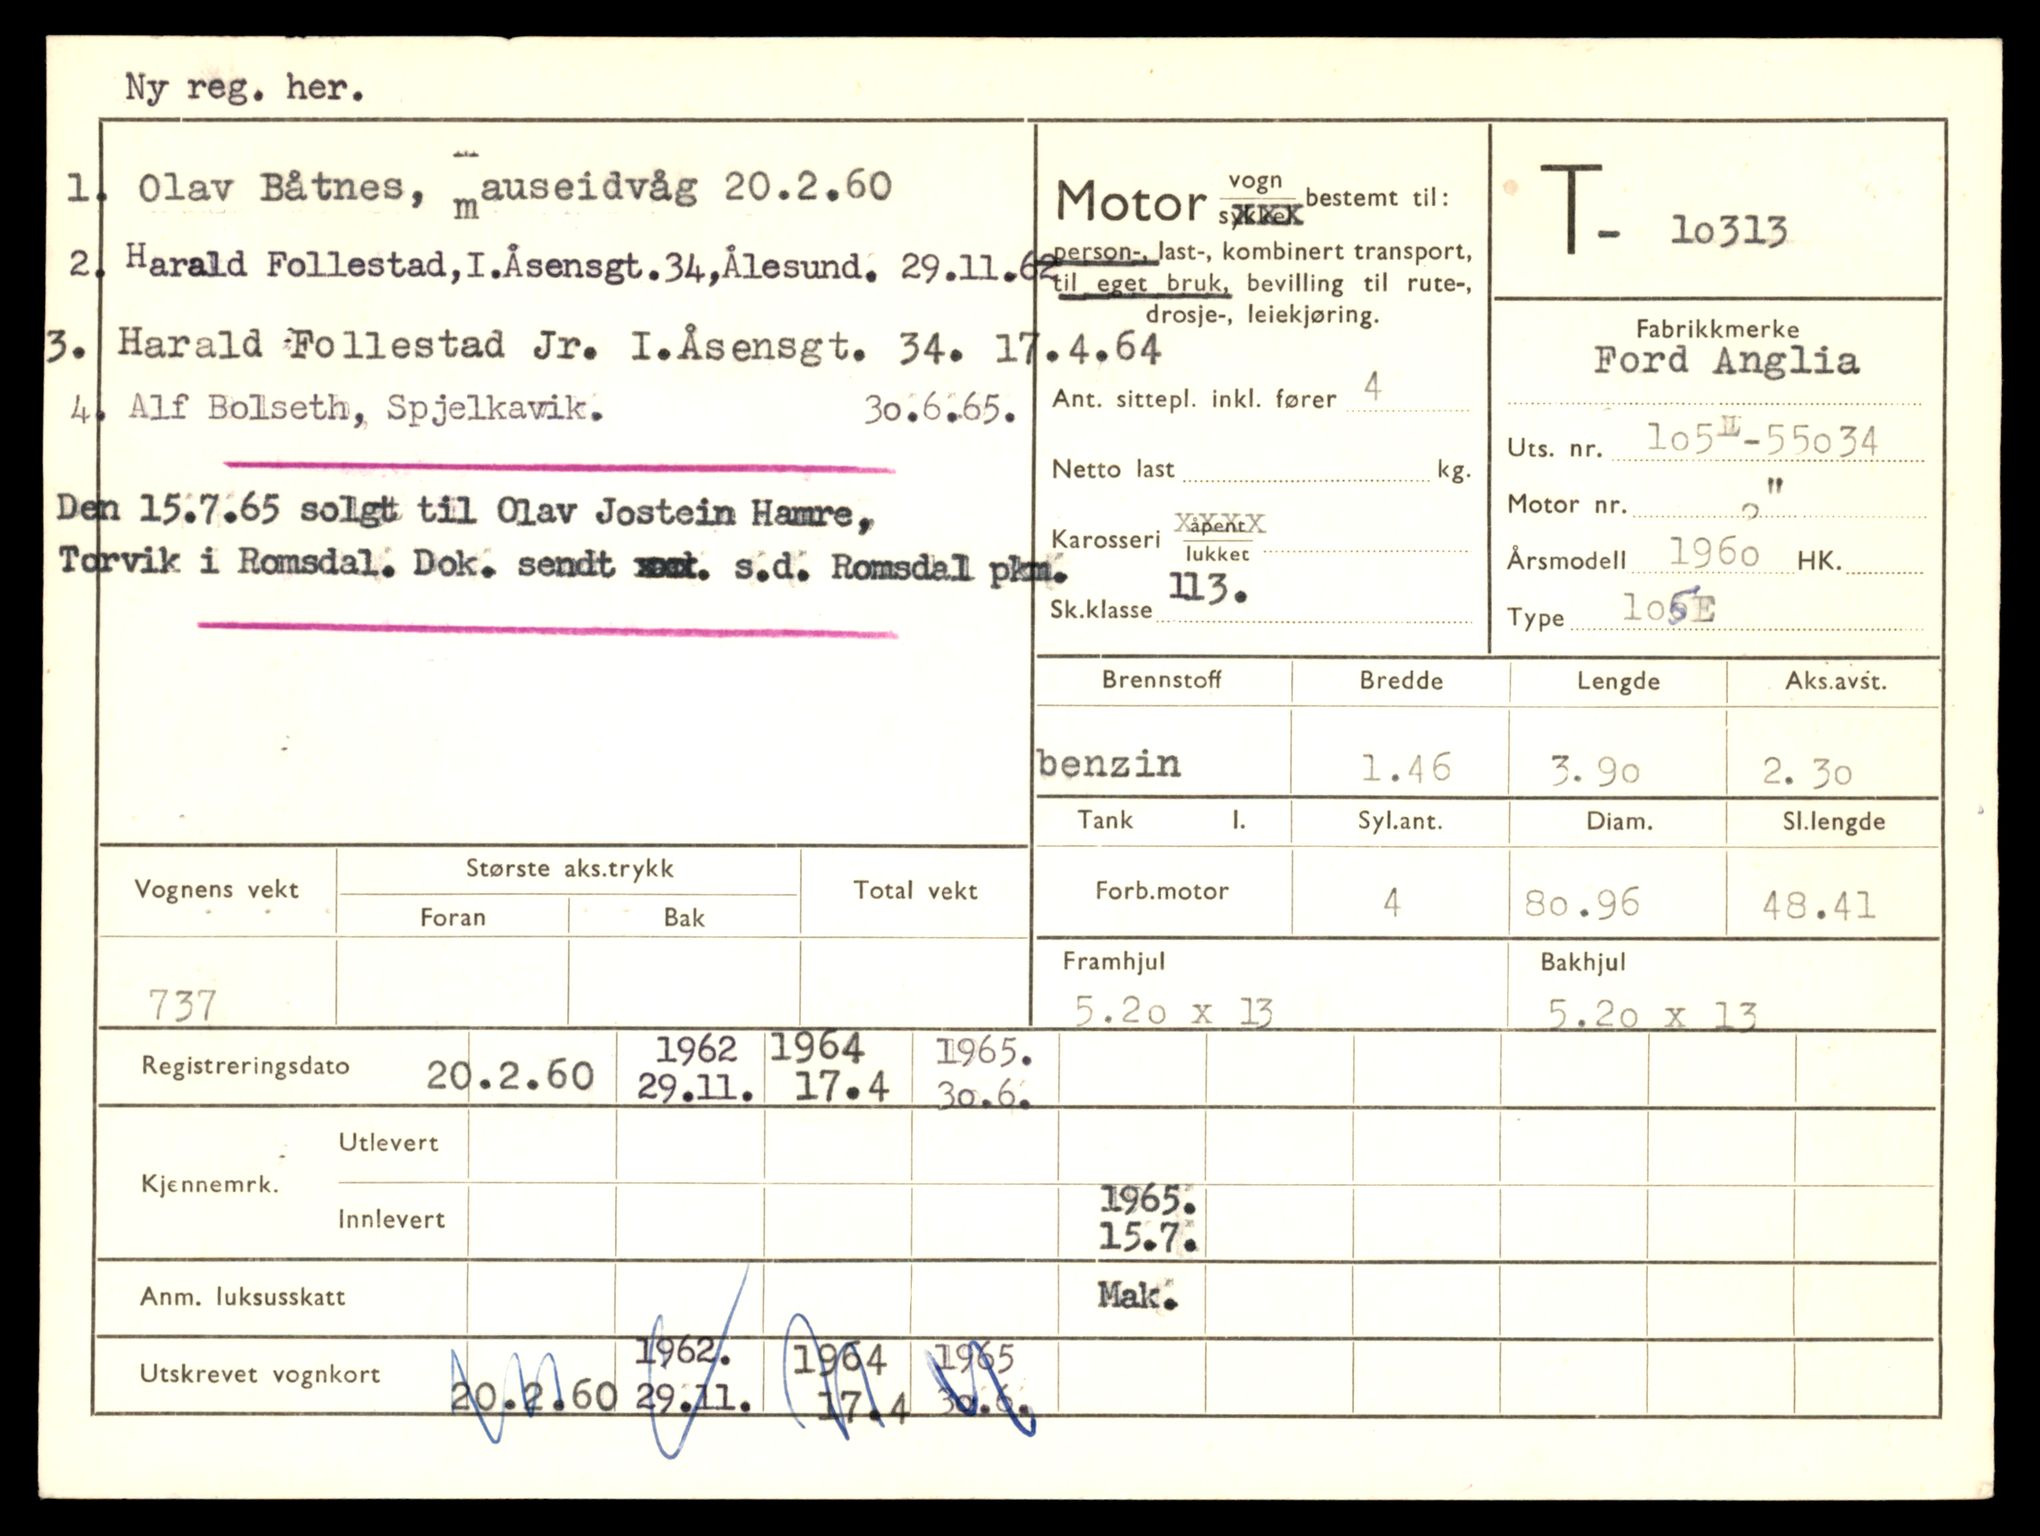 Ny reg. her.
1. Olav Båtnes, mauseidvåg 20.2.60
2. Harald Follestad, I.Åsensgt.34, Ålesund. 29.11.62
3. Harald Follestad Jr. I.Åsensgt. 34. 17.4.64
4. Alf Bolseth, Spjelkavik. 30.6.65.
Den 15.7.65 solgt til Olav Jostein Hamre,
Torvik i Romsdal. Dok. sendt s.d. Romsdal pkm.
Motor vogn bestemt til:
sykkel
person-, last-, kombinert transport,
til eget bruk, bevilling til rute-,
drosje-, leiekjøring.
Ant. sittepl. inkl. fører 4
Netto last kg.
Karosseri åpent
lukket
Sk.klasse 113.
T- 10313
Fabrikkmerke
Ford Anglia
Uts. nr. 105E-55034
Motor nr. "
Årsmodell 1960 HK.
Type 105E
Brennstoff Bredde Lengde Aks.avst.
benzin 1.46 3.90 2.30
Tank l. Syl.ant. Diam. Sl.lengde
Forb.motor 4 80.96 48.41
Framhjul Bakhjul
5.20 x 13 5.20 x 13
Vognens vekt Største aks.trykk Total vekt
Foran Bak
737
Registreringsdato 20.2.60 1962 29.11. 1964 17.4 1965. 30.6.
Kjennemrk. Utlevert
Innlevert 1965. 15.7.
Anm. luksusskatt Mak.
Utskrevet vognkort 20.2.60 1962. 29.11. 1964 17.4 1965 30.6.